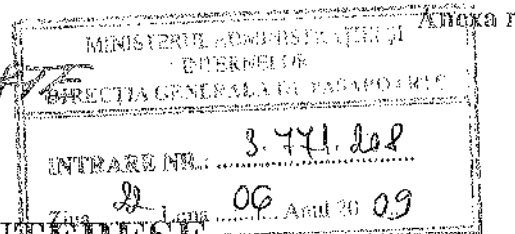 Anexa n
MINISTERUL ADMINISTRAȚIEI ȘI
INTERNELOR
DIRECȚIA GENERALĂ DE PAȘAPOARTE
INTRARE NR.: 3.771.208
Ziua 22 Luna 06 Anul 20 09
INTERESE